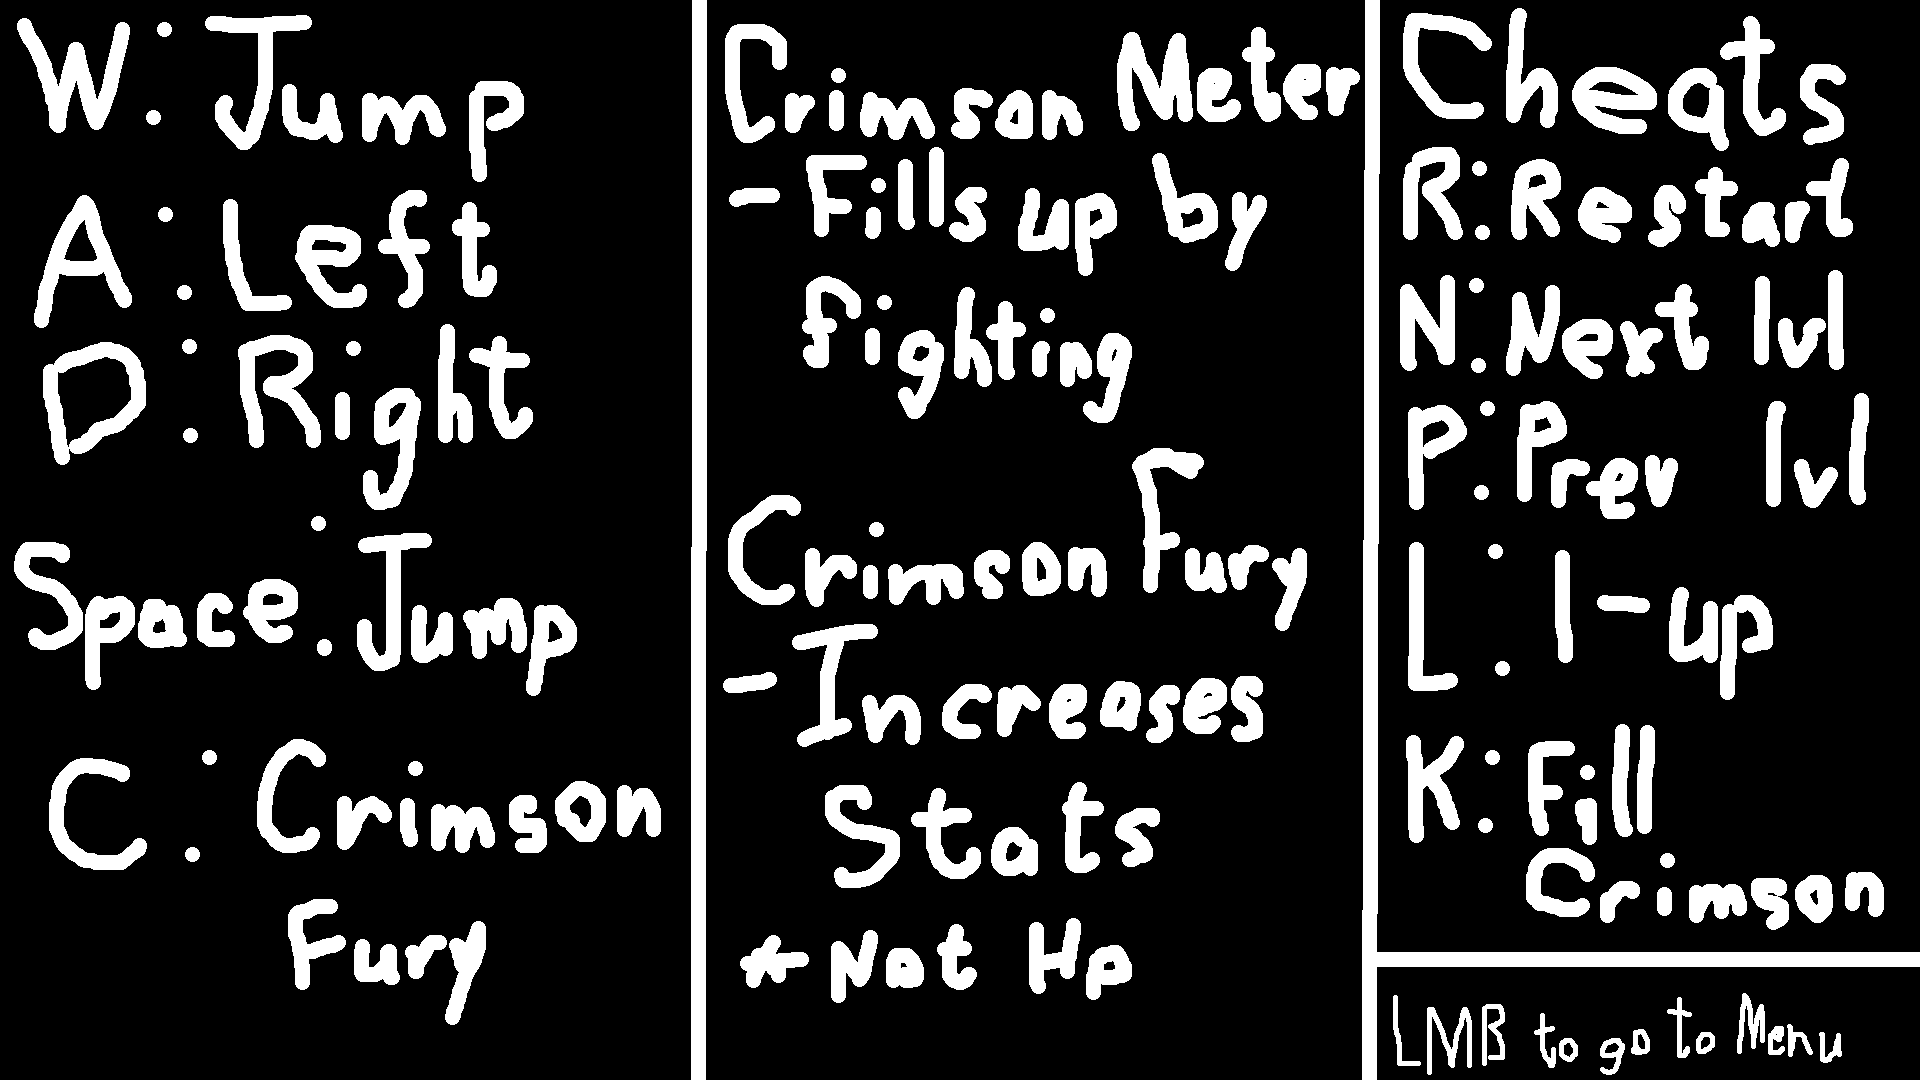 W: Jump
A: Left
D: Right
Space: Jump
C: Crimson
Fury
Crimson Meter
- Fills up by
fighting
Crimson Fury
- Increases
Stats
* Not Hp
Cheats
R: Restart
N: Next lvl
P: Prev lvl
L: 1-up
K: Fill
Crimson
LMB to go to Menu